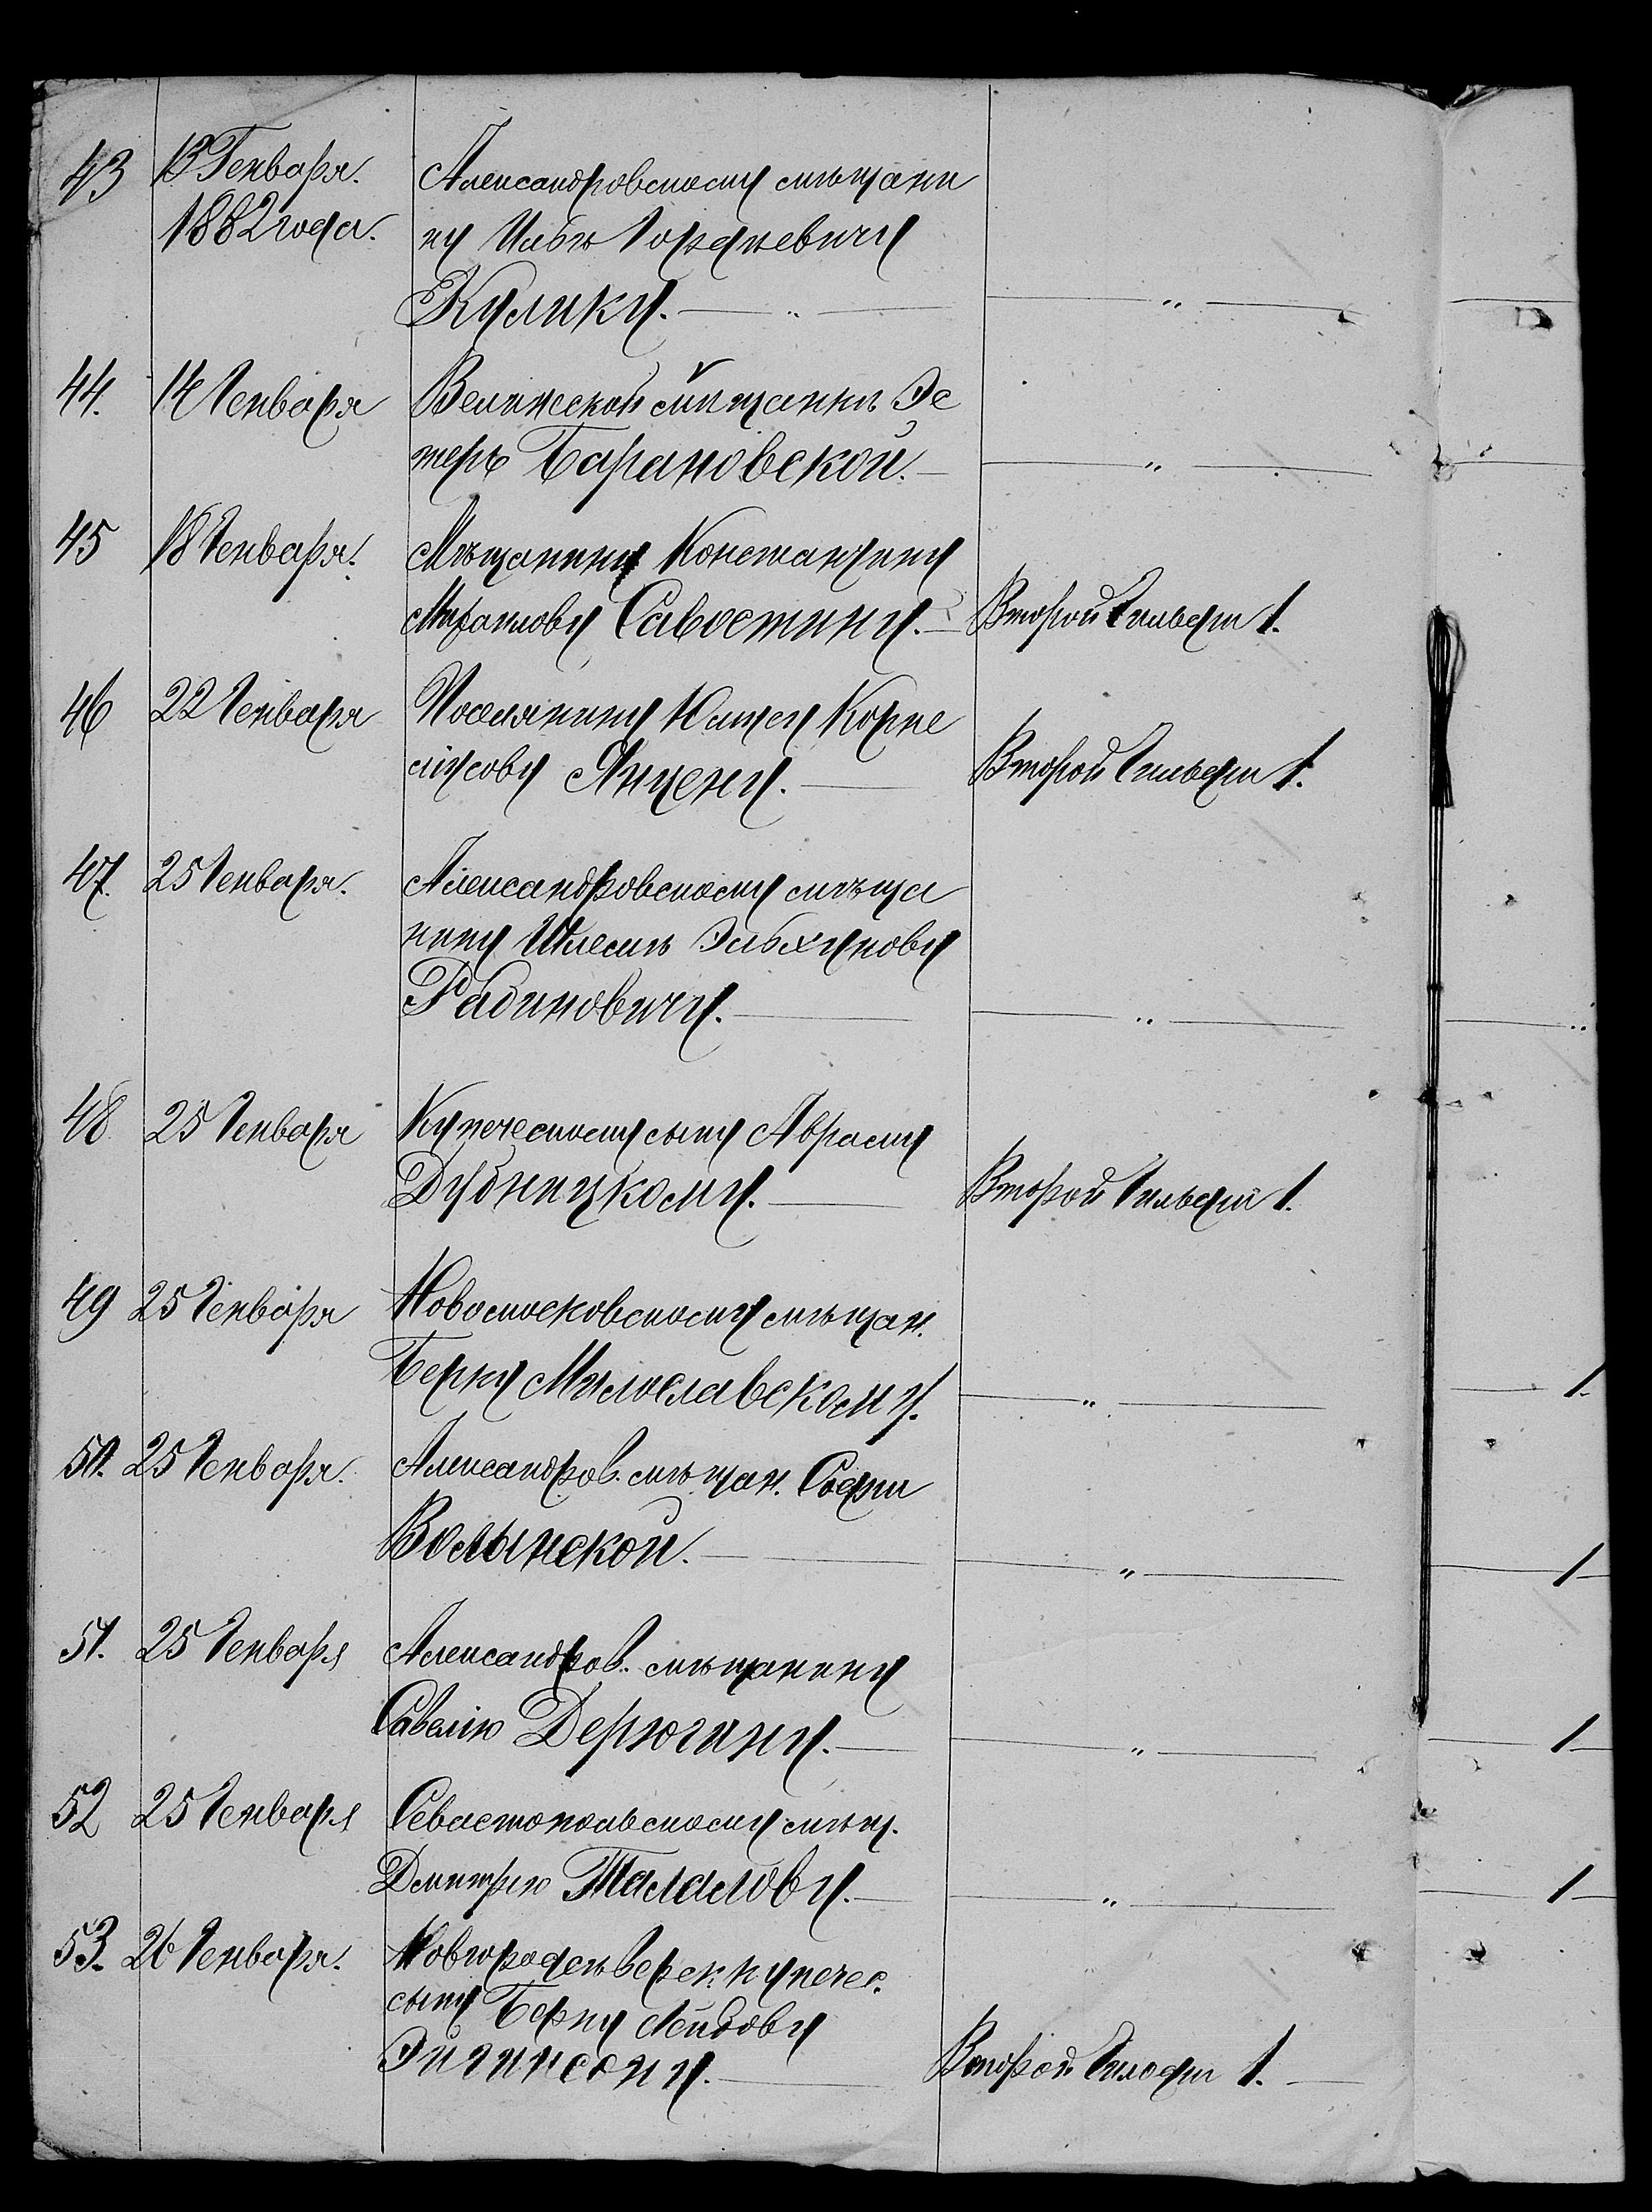 43 13 Генваря. Александровскому мѣщани
1882 года. ну Ильѣ Гордѣевичу
Кулику. — „ — — „ —
44. 14 Генваря Велижской мѣщанкѣ Эс
терѣ Барановской. — — „ —
45 18 Генваря. Мѣщанину Константину
Савостину. — Второй Гильдіи 1.
46 22 Генваря Поселянину Корне
ліусову Янцену. — Второй Гильдіи 1.
47. 25 Генваря. Александровскому мѣща
нину Шлемѣ Эльхунову
Рабиновичу. — — „ — — „
48 25 Генваря Купеческому сыну Абраму
Дубницкому. — Второй Гильдіи 1.
49 25 Генваря Новомосковскому мѣщан.
Берку Милославскому. — „ — — 1.
50. 25 Генваря. Александров. мѣщан. Софіи
Волынской. — — „ — — 1 —
51. 25 Генваря Александров. мѣщанину
Савелію Дерюгину. — — „ — — 1 —
52 25 Генваря Севастопольскому мѣщ.
Дмитрію Талалову. — — „ — — 1 —
53. 26 Генваря. Новгородсѣверск. купечес.
сыну Берку Лейбову
Эйгинсону. — Второй Гильдіи 1. —